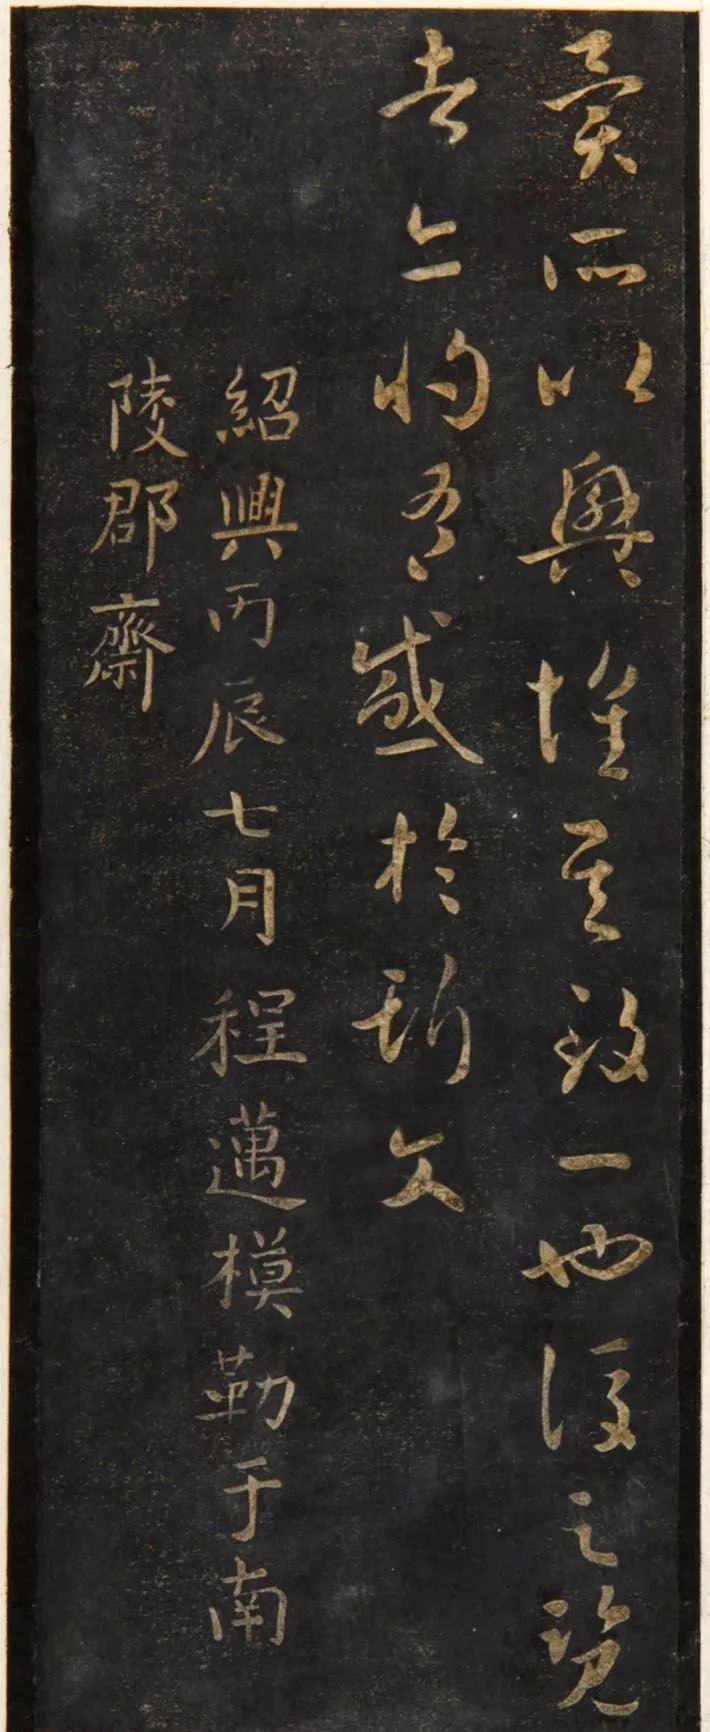 異所以興懷其致一也後之覽
者亦將有感於斯文
紹興丙辰七月程邁模勒于南
陵郡齋